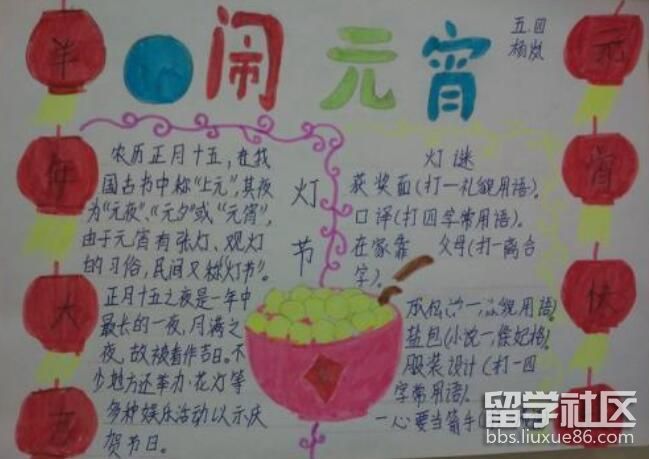 闹元宵
五.四
杨岚
羊
年
大
元
宵
快
农历正月十五,在我
国古书中称“上元”,其夜
为“元夜”、“元夕”或“元宵”,
由于元宵有张灯、观灯
的习俗,民间又称“灯节”。
正月十五之夜是一年中
最长的一夜,月满之
夜,故被看作吉日。不
少地方还举办花灯等
多种娱乐活动以示庆
贺节日。
灯
节
灯谜
获奖面(打一礼貌用语)。
口译(打四字常用语)。
在家靠 父母(打一离合
字)。
貌用语)
盐包(小说一
服装设计(打一四
字常用语)。
一心要当箭手
留学社区
bbs.liuxue86.com